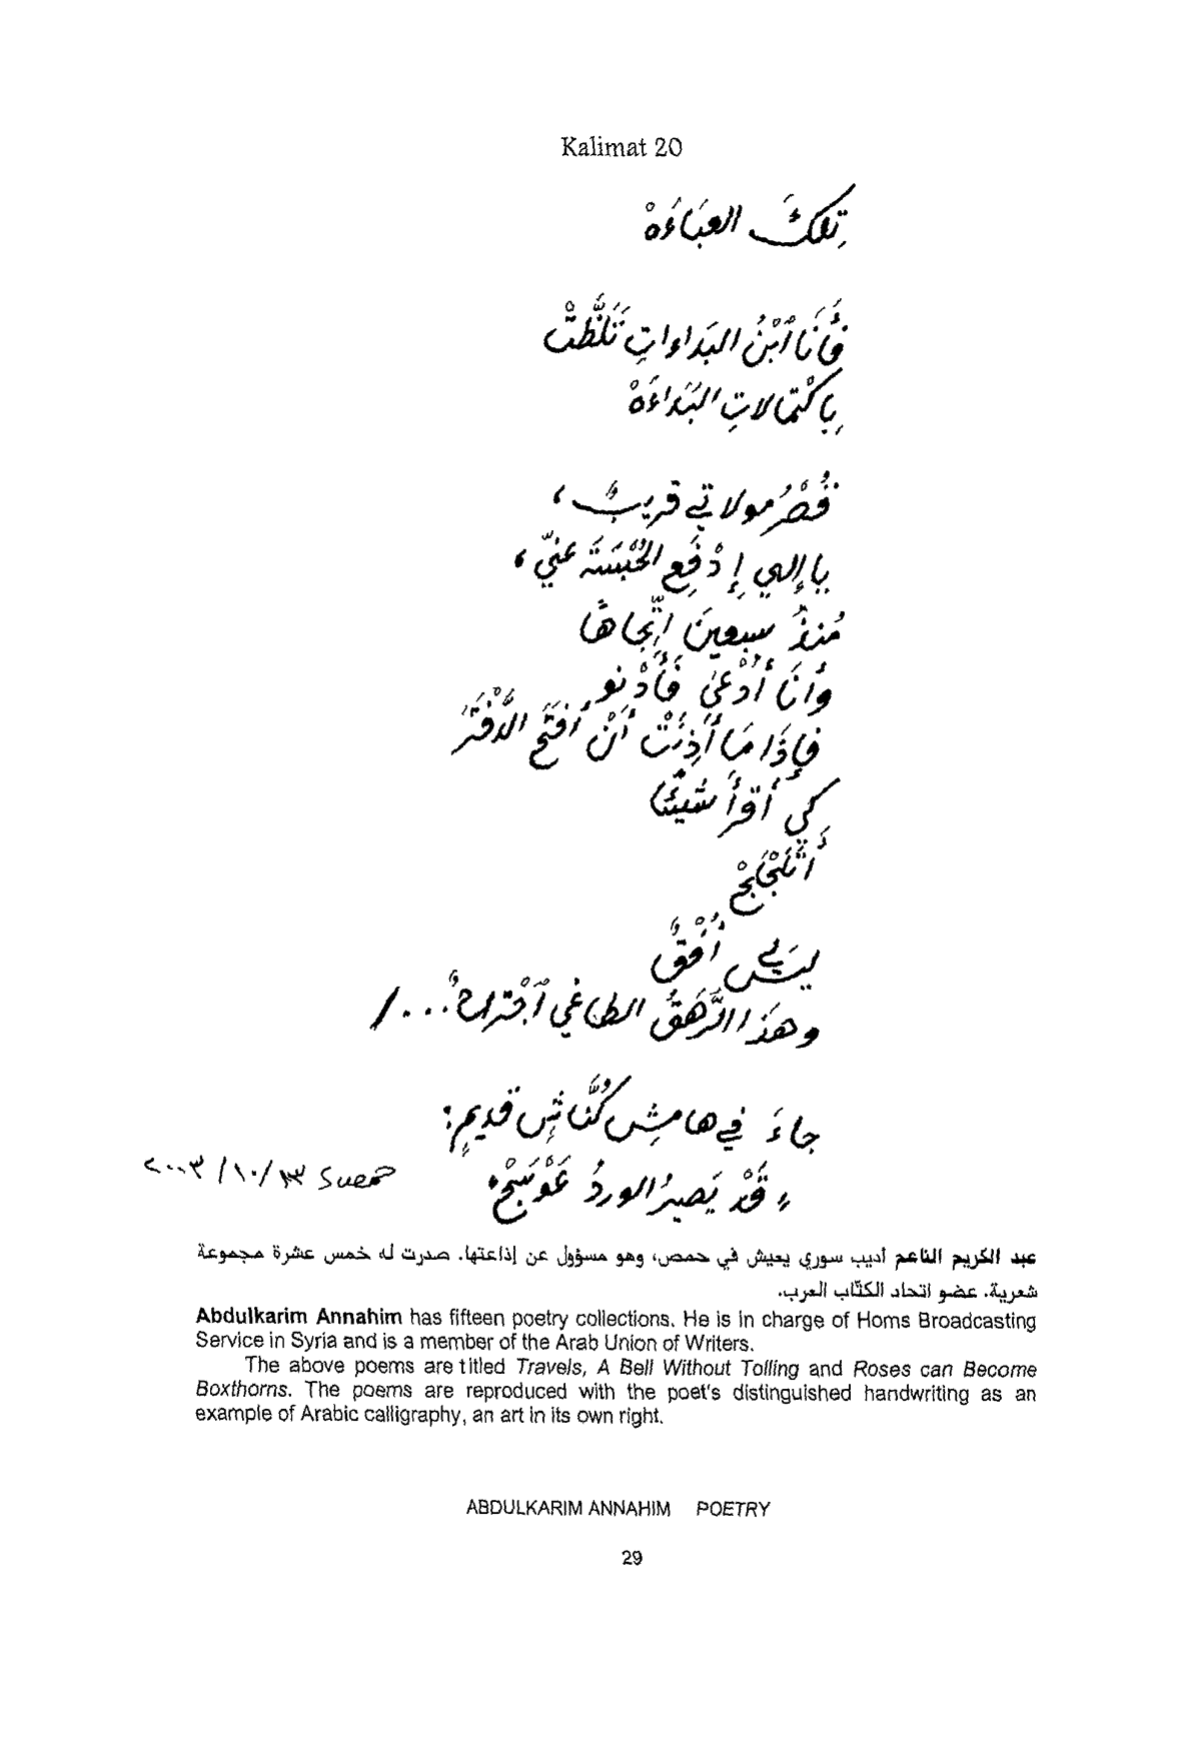 Kalimat 20
تِلكَ العبَاءَهْ
فَأَنَا ٱبْنُ البَداءاتِ تَلَظَّتْ
بِاكْتِمالاتِ البَدَاءَهْ
قُصْرُ مولاتي قريبٌ،
يا إلهي إِدْفَعِ الحُبْسَةَ عنّي،
مُنذُ سبعينَ اتّجاهًا
وأنَا أُدْعىٰ فَأَدْنو
فإِذَا مَا أَذِنَتْ أَنْ أفتَحَ الدَّفْتَرَ
كي أقرأَ شَيْئًا
أَتَلَجْلَجْ
ليسَ لي أُفْقٌ
وهذا الرَّهَقُ الطاغي ٱجْتراحٌ.../
جاءَ في هامشِ كُنَّاشٍ قديمٍ:
"قَدْ يَصيرُ الوردُ عَوْسَجْ"
حمص ٢٠٠٣/١٠/١٣
عبد الكريم الناعم أديب سوري يعيش في حمص، وهو مسؤول عن إذاعتها. صدرت له خمس عشرة مجموعة
شعرية. عضو اتحاد الكتّاب العرب.
Abdulkarim Annahim has fifteen poetry collections. He is in charge of Homs Broadcasting
Service in Syria and is a member of the Arab Union of Writers.
The above poems are titled Travels, A Bell Without Tolling and Roses can Become
Boxthorns. The poems are reproduced with the poet's distinguished handwriting as an
example of Arabic calligraphy, an art in its own right.
ABDULKARIM ANNAHIM POETRY
29